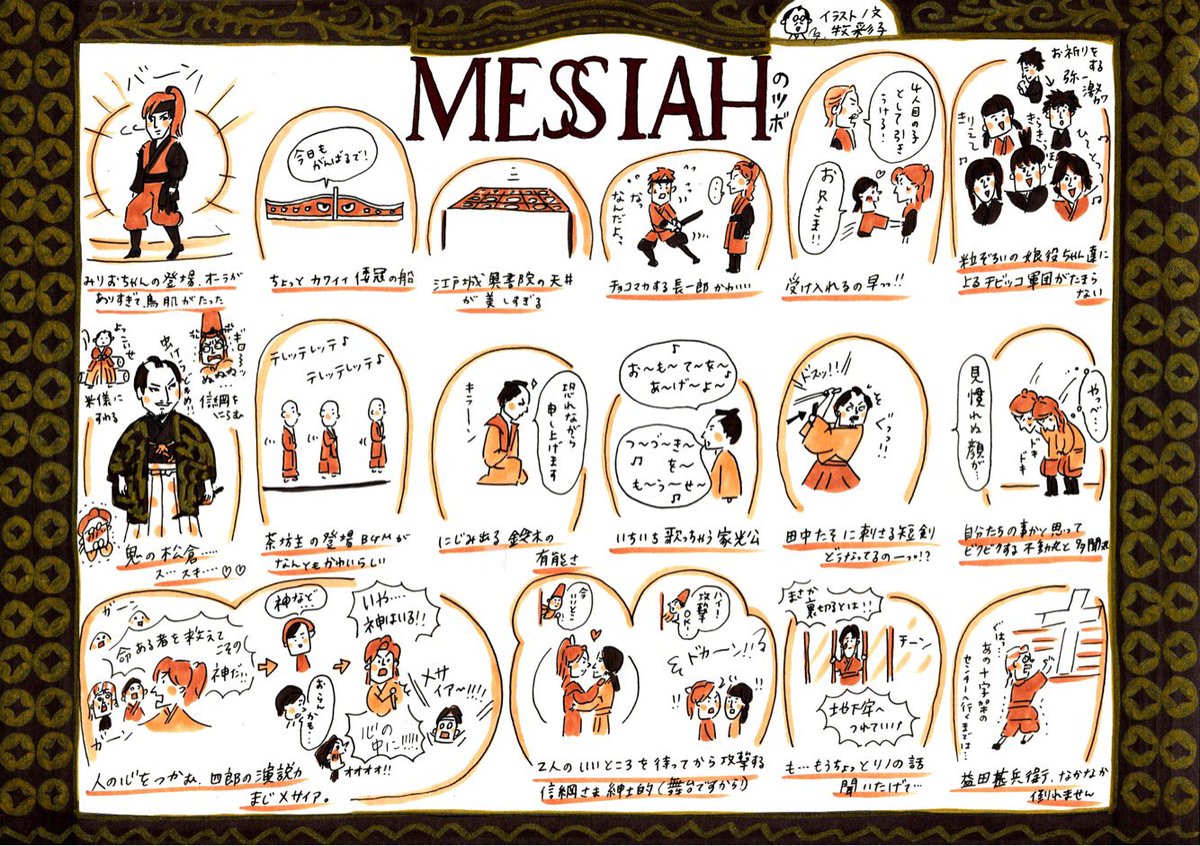 イラスト/文
牧彩子
MESSIAH
のツボ
バーン
みりおちゃんの登場、オーラが
ありすぎて、鳥肌がたった
今日も
がんばるで!
ちょっとカワイイ倭冠の船
江戸城奥書院の天井
が美しすぎる
なっ
なんだよっ
チョコマカする長一郎かわいい
4人目の子
として引き
うけろ!
お兄さま!!
受け入れるの早っ!!
お祈りを
する
弥一
激カワ
粒ぞろいの娘役ちゃん達に
よるチビッコ軍団がたまら
ない
よっこいせ
米俵に
すわる
ギロッ
ぬぬぬ…
信綱を
にらむ
鬼の松倉……
ス…スキ…♡♡
テレッテレッテ♪
テレッテレッテ♪
茶坊主の登場BGMが
なんともかわいらしい
キラーン
恐れながら
申し上げます
にじみ出る鈴木の
有能さ
♪
お〜も〜て〜を〜
あ〜げ〜よ〜♪
つ〜づ〜き〜
♪を〜
も〜う〜せ〜
♪
いちいち歌っちゃう家光公
ドスッ!!
ぐっっ!!
田中たそに刺さる短剣
どうなってるのーっっ!?
見慣れぬ顔が…
やっべ…
ドキ
ドキ
自分たちの事かと思って
ビクビクする不動丸と多聞丸
ガーン
命ある者を救えて
こその
神だ…
ガーン
神など…
いや…
神はいる!!
おらんかも…
心の
中に!!!!!
メサ
イア〜!!!!
オオオオ!!
人の心をつかみ、四郎の演説力
まじメサイア。
今
いいとこ
ハイ!
攻撃
OK!
ドカーン!!
2人のいいところを待ってから攻撃する
信綱さま紳士的(舞台ですから)
まさか
裏切るとは!!
チーン
地下牢へ
つれていけ
も…もうちょっとリノの話
聞いたげて…
ぐは…
あの十字架の
センターへ行くまでは…
益田甚兵衛、なかなか
倒れません